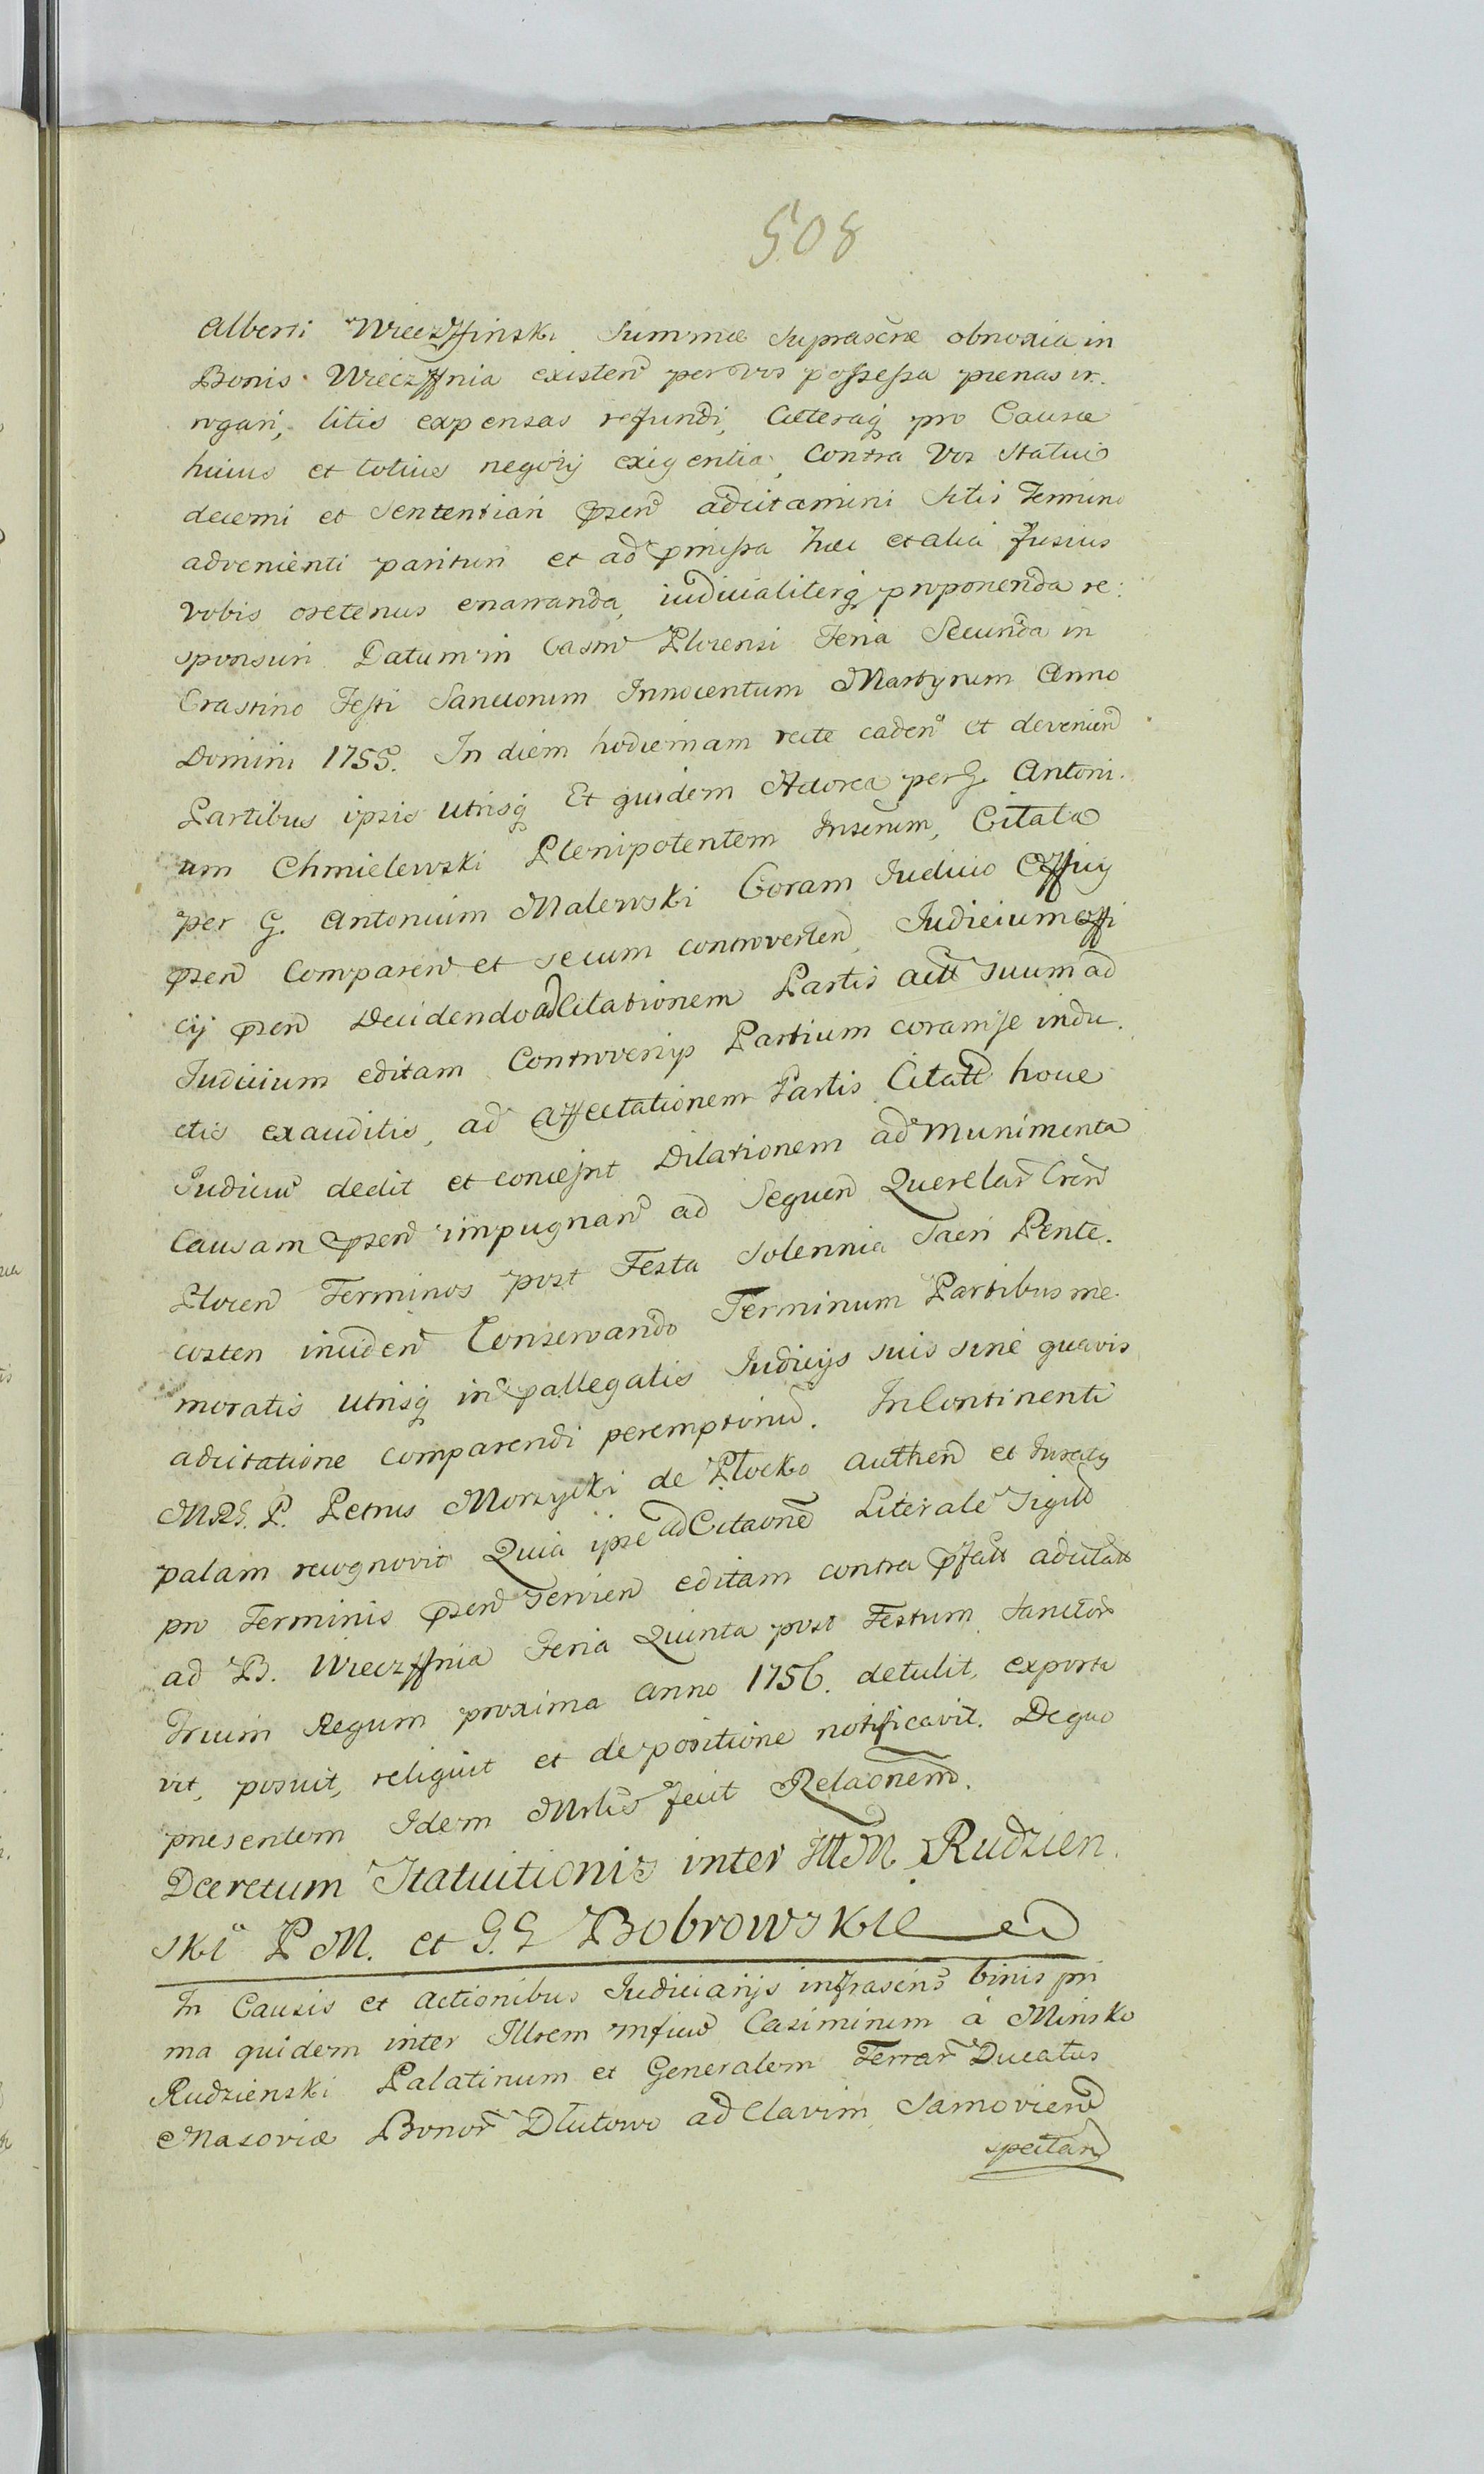 508
Alberti Wieczffinski Summæ Suprascræ obnoxia in
Bonis Wieczffnia existen per vos possessa pænas ir.
rogari, litis expensas refundi, Cæteraq pro Causæ
huius et totius negotij exigentia, Contra Vos statui
decerni et Sententiari psen adcitamini Sitis Termino
advenienti parituri et ad pmissa hæc et alia fusius
vobis oretenus enarranda, iudicialiterq proponenda re:
sponsuri. Datum in Castro Plocensi Feria Secunda in
Crastino Festi Sanctorum Innocentum Martyrum Anno
Domini 1755. In diem hodiernam recte caden et devenien
Partibus ipsis utrisq Et quidem Actorea per G. Antoni.
um Chmielewski Plenipotentem Inserum, Citata
per G. Antonium Malewski Coram Iudicio Officij
psen Comparen et secum controverten Iudicium offi
cij psen Decidendo ad Citationem Partis actt suum ad
Iudicium editam Controversijs Partium coram se indu.
ctis exauditis, ad Affectationem Partis Citatt hocce
Iudiciu dedit et concessit Dilationem ad Munimenta
Causam psen impugnan ad Sequen Querelar Cren
Plocen Terminos post Festa Solennia Sacri Pente.
costen inciden Conservando Terminum Partibus me.
moratis utrisq in pallegatis Iudicijs suis sine quavis
adcitatione comparendi peremptoriu. In Continenti
MRS. P. Petrus Morzycki de Płocko Authen et Iuratg
palam recognovit Quia ipse ad Citaone Literale Sigill
pro Terminis psen Servien editam contra pfatt adcitatt
ad B. Wieczffnia Feria Quinta post Festum Sanctor
Trium Regum proxima Anno 1756. detulit, exporta
vit, posuit, reliquit et de positione notificavit. De quo
præsentem Idem Mrlis fecit Relaonem.
Decretum Statuitionis inter Ill M. Rudzien
ski P M. et G.G Bobrowskie
In Causis et Actionibus Iudiciarijs infrascris binis pri
ma quidem inter Illrem Mficu Casimirum à Minsko
Rudzienski Palatinum et Generalem Terrar Ducatus
Masoviæ Bonor Dłutowo ad Clavim Sarnovien
spectan